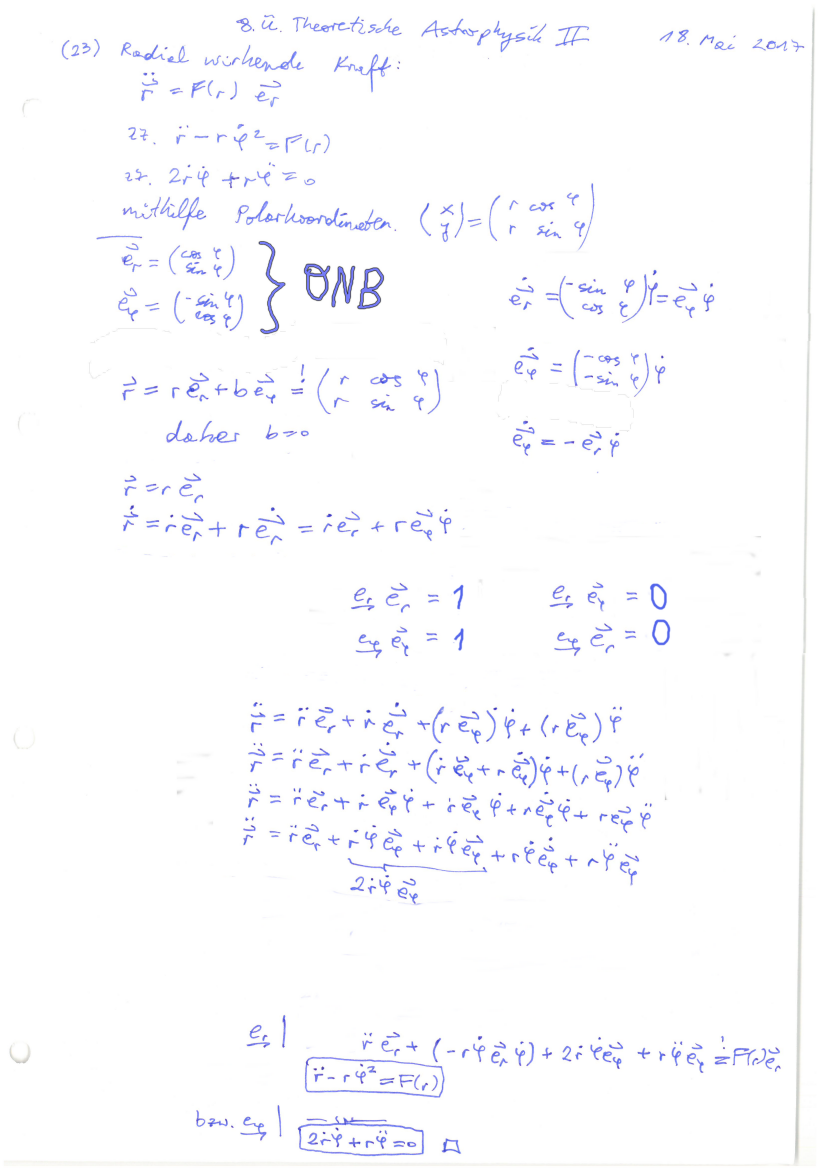 8. Ü. Theoretische Astrophysik II 18. Mai 2017
(23) Radial wirkende Kraft:
r⃗̈ = F(r) e⃗ᵣ
zz. r̈ - r φ̇² = F(r)
zz. 2ṙφ̇ + rφ̈ = 0
mithilfe Polarkoordinaten. (x y) = (r cos φ r sin φ)
e⃗ᵣ = (cos φ sin φ)
e⃗ᵩ = (-sin φ cos φ) } ONB
e⃗̇ᵣ = (-sin φ cos φ) φ̇ = e⃗ᵩ φ̇
e⃗̇ᵩ = (-cos φ -sin φ) φ̇
e⃗̇ᵩ = - e⃗ᵣ φ̇
r⃗ = r e⃗ᵣ + b e⃗ᵩ =! (r cos φ r sin φ)
daher b=0
r⃗ = r e⃗ᵣ
r⃗̇ = ṙ e⃗ᵣ + r e⃗̇ᵣ = ṙ e⃗ᵣ + r e⃗ᵩ φ̇
e⃗ᵣ e⃗ᵣ = 1 e⃗ᵣ e⃗ᵩ = 0
e⃗ᵩ e⃗ᵩ = 1 e⃗ᵩ e⃗ᵣ = 0
r⃗̈ = r̈ e⃗ᵣ + ṙ e⃗̇ᵣ + (r e⃗ᵩ)˙ φ̇ + (r e⃗ᵩ) φ̈
r⃗̈ = r̈ e⃗ᵣ + ṙ e⃗̇ᵣ + (ṙ e⃗ᵩ + r e⃗̇ᵩ) φ̇ + (r e⃗ᵩ) φ̈
r⃗̈ = r̈ e⃗ᵣ + ṙ e⃗ᵩ φ̇ + ṙ e⃗ᵩ φ̇ + r e⃗̇ᵩ φ̇ + r e⃗ᵩ φ̈
r⃗̈ = r̈ e⃗ᵣ + ṙ φ̇ e⃗ᵩ + ṙ φ̇ e⃗ᵩ + r φ̇ e⃗̇ᵩ + r φ̈ e⃗ᵩ
2ṙφ̇ e⃗ᵩ
e⃗ᵣ | r̈ e⃗ᵣ + (-rφ̇ e⃗ᵣ φ̇) + 2ṙφ̇ e⃗ᵩ + rφ̈ e⃗ᵩ =! F(r) e⃗ᵣ
r̈ - r φ̇² = F(r)
bzw. e⃗ᵩ | 2ṙφ̇ + rφ̈ = 0 □